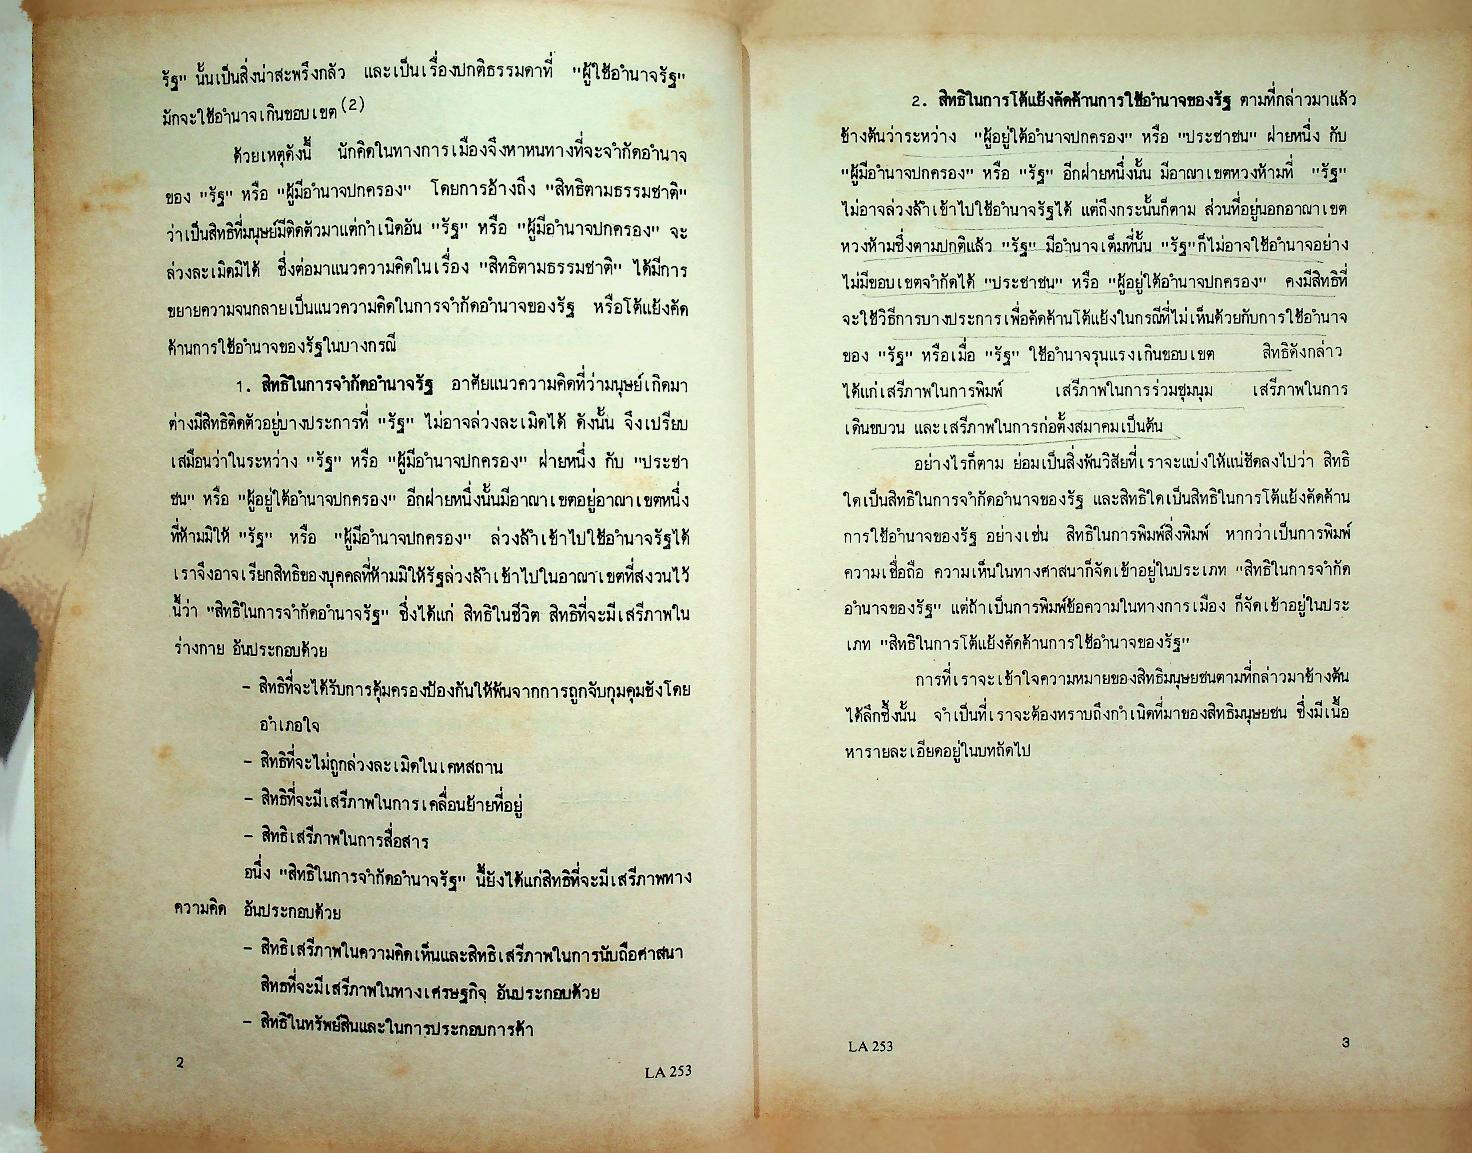 รัฐ" นั้นเป็นสิ่งน่าสะพรึงกลัว และเป็นเรื่องปกติธรรมดาที่ "ผู้ใช้อำนาจรัฐ"
มักจะใช้อำนาจเกินขอบเขต(2)
ด้วยเหตุดังนี้ นักคิดในทางการเมืองจึงหาหนทางที่จะจำกัดอำนาจ
ของ "รัฐ" หรือ "ผู้มีอำนาจปกครอง" โดยการอ้างถึง "สิทธิตามธรรมชาติ"
ว่าเป็นสิทธิที่มนุษย์มีติดตัวมาแต่กำเนิดอัน "รัฐ" หรือ "ผู้มีอำนาจปกครอง" จะ
ล่วงละเมิดมิได้ ซึ่งต่อมาแนวความคิดในเรื่อง "สิทธิตามธรรมชาติ" ได้มีการ
ขยายความจนกลายเป็นแนวความคิดในการจำกัดอำนาจของรัฐ หรือโต้แย้งคัด
ค้านการใช้อำนาจของรัฐในบางกรณี
1. สิทธิในการจำกัดอำนาจรัฐ อาศัยแนวความคิดที่ว่ามนุษย์เกิดมา
ต่างมีสิทธิติดตัวอยู่บางประการที่ "รัฐ" ไม่อาจล่วงละเมิดได้ ดังนั้น จึงเปรียบ
เสมือนว่าในระหว่าง "รัฐ" หรือ "ผู้มีอำนาจปกครอง" ฝ่ายหนึ่ง กับ "ประชา
ชน" หรือ "ผู้อยู่ใต้อำนาจปกครอง" อีกฝ่ายหนึ่งนั้นมีอาณาเขตอยู่อาณาเขตหนึ่ง
ที่ห้ามมิให้ "รัฐ" หรือ "ผู้มีอำนาจปกครอง" ล่วงล้ำเข้าไปใช้อำนาจรัฐได้
เราจึงอาจเรียกสิทธิของบุคคลที่ห้ามมิให้รัฐล่วงล้ำเข้าไปในอาณาเขตที่สงวนไว้
นี้ว่า "สิทธิในการจำกัดอำนาจรัฐ" ซึ่งได้แก่ สิทธิในชีวิต สิทธิที่จะมีเสรีภาพใน
ร่างกาย อันประกอบด้วย
- สิทธิที่จะได้รับการคุ้มครองป้องกันให้พ้นจากการถูกจับกุมคุมขังโดย
อำเภอใจ
- สิทธิที่จะไม่ถูกล่วงละเมิดในเคหสถาน
- สิทธิที่จะมีเสรีภาพในการเคลื่อนย้ายที่อยู่
- สิทธิเสรีภาพในการสื่อสาร
อนึ่ง "สิทธิในการจำกัดอำนาจรัฐ" นี้ยังได้แก่สิทธิที่จะมีเสรีภาพทาง
ความคิด อันประกอบด้วย
- สิทธิเสรีภาพในความคิดเห็นและสิทธิเสรีภาพในการนับถือศาสนา
สิทธที่จะมีเสรีภาพในทางเศรษฐกิจ อันประกอบด้วย
- สิทธิในทรัพย์สินและในการประกอบการค้า
2
LA 253
2. สิทธิในการโต้แย้งคัดค้านการใช้อำนาจของรัฐ ตามที่กล่าวมาแล้ว
ข้างต้นว่าระหว่าง "ผู้อยู่ใต้อำนาจปกครอง" หรือ "ประชาชน" ฝ่ายหนึ่ง กับ
"ผู้มีอำนาจปกครอง" หรือ "รัฐ" อีกฝ่ายหนึ่งนั้น มีอาณาเขตหวงห้ามที่ "รัฐ"
ไม่อาจล่วงล้ำเข้าไปใช้อำนาจรัฐได้ แต่ถึงกระนั้นก็ตาม ส่วนที่อยู่นอกอาณาเขต
หวงห้ามซึ่งตามปกติแล้ว "รัฐ" มีอำนาจเต็มที่นั้น "รัฐ"ก็ไม่อาจใช้อำนาจอย่าง
ไม่มีขอบเขตจำกัดได้ "ประชาชน" หรือ "ผู้อยู่ใต้อำนาจปกครอง" คงมีสิทธิที่
จะใช้วิธีการบางประการเพื่อคัดค้านโต้แย้งในกรณีที่ไม่เห็นด้วยกับการใช้อำนาจ
ของ "รัฐ" หรือเมื่อ "รัฐ" ใช้อำนาจรุนแรงเกินขอบเขต สิทธิดังกล่าว
ได้แก่เสรีภาพในการพิมพ์ เสรีภาพในการร่วมชุมนุม เสรีภาพในการ
เดินขบวน และเสรีภาพในการก่อตั้งสมาคมเป็นต้น
อย่างไรก็ตาม ย่อมเป็นสิ่งพ้นวิสัยที่เราจะแบ่งให้แน่ชัดลงไปว่า สิทธิ
ใดเป็นสิทธิในการจำกัดอำนาจของรัฐ และสิทธิใดเป็นสิทธิในการโต้แย้งคัดค้าน
การใช้อำนาจของรัฐ อย่างเช่น สิทธิในการพิมพ์สิ่งพิมพ์ หากว่าเป็นการพิมพ์
ความเชื่อถือ ความเห็นในทางศาสนาก็จัดเข้าอยู่ในประเภท "สิทธิในการจำกัด
อำนาจของรัฐ" แต่ถ้าเป็นการพิมพ์ข้อความในทางการเมือง ก็จัดเข้าอยู่ในประ
เภท "สิทธิในการโต้แย้งคัดค้านการใช้อำนาจของรัฐ"
การที่เราจะเข้าใจความหมายของสิทธิมนุษยชนตามที่กล่าวมาข้างต้น
ได้ลึกซึ้งนั้น จำเป็นที่เราจะต้องทราบถึงกำเนิดที่มาของสิทธิมนุษยชน ซึ่งมีเนื้อ
หารายละเอียดอยู่ในบทถัดไป
LA 253
3